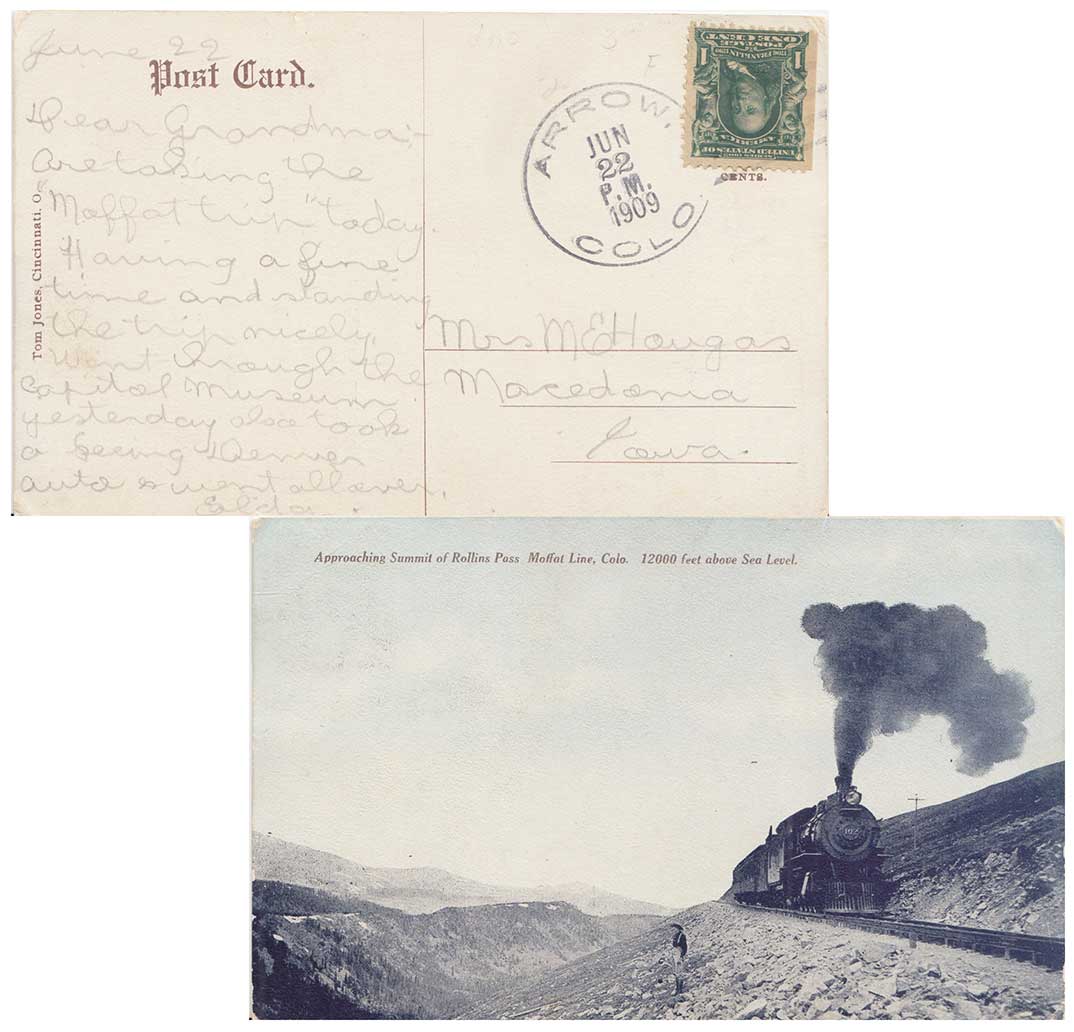 June 22
Post Card.
Dear Grandma:-
Are taking the
"Moffat trip" today.
Having a fine
time and standing
the trip nicely.
Went through the
Capitol Museum
yesterday also took
a Seeing Denver
auto & went all over.
Elda
Tom Jones, Cincinnati, O.
ARROW,
JUN
22
P.M.
1909
COLO.
1 1
POSTAGE
ONE CENT
FRANKLIN
UNITED STATES OF
AMERICA
CENTS.
Mrs M E Hougas
Macedonia
Iowa.
Approaching Summit of Rollins Pass Moffat Line, Colo. 12000 feet above Sea Level.